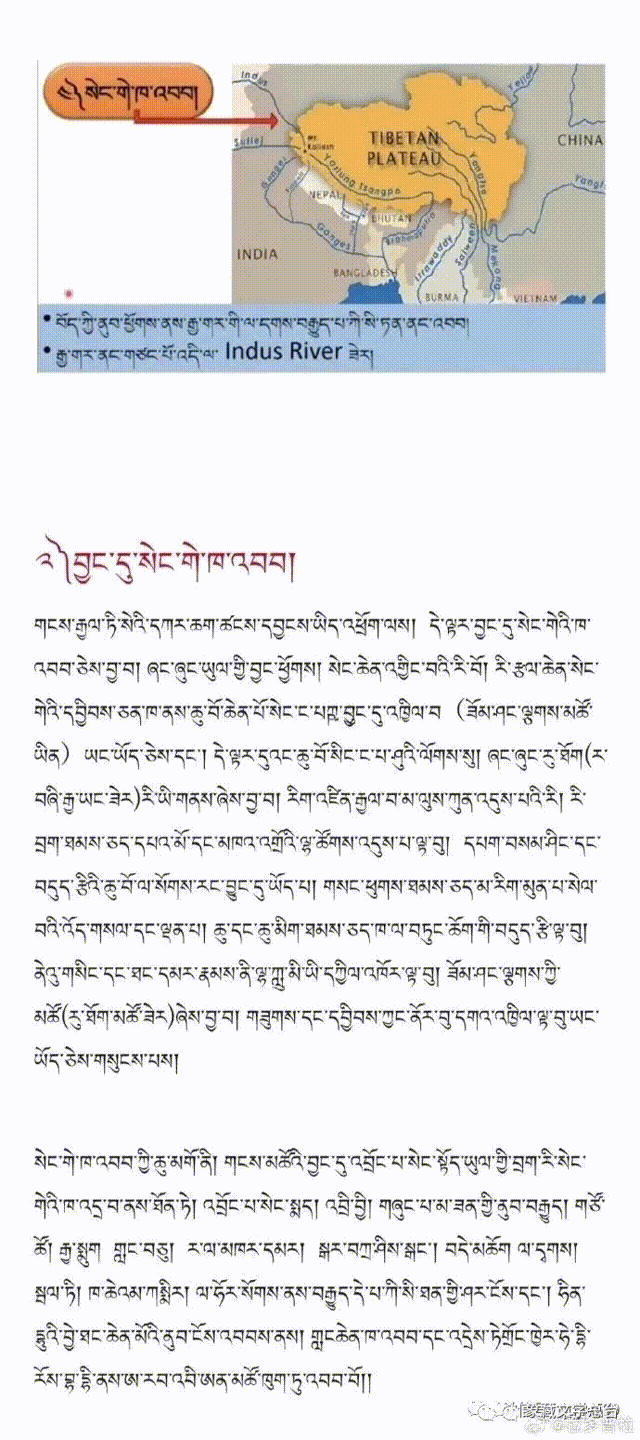 ༤༽ སེང་གེ་ཁ་འབབ།
Indus
Sutlej
Mt. Kailash
TIBETAN
PLATEAU
CHINA
Yarlung Tsangpo
Ganges
NEPAL
BHUTAN
Ganges
Brahmaputra
Irrawaddy
Salween
Mekong
Yangtse
INDIA
BANGLADESH
BURMA
VIETNAM
• བོད་ཀྱི་ནུབ་ཕྱོགས་ནས་རྒྱ་གར་གི་ལ་དགས་བརྒྱུད་པ་ཀི་སི་ཏན་ནང་འབབ།
• རྒྱ་གར་ནང་གཙང་པོ་འདི་ལ་ Indus River ཟེར།
༢༽བྱང་དུ་སེང་གེ་ཁ་འབབ།
གངས་རྒྱལ་ཏི་སེའི་དཀར་ཆག་ཚངས་དབྱངས་ཡིད་འཕྲོག་ལས། དེ་ལྟར་བྱང་དུ་སེང་གེའི་ཁ་
འབབ་ཅེས་བྱ་བ། ཞང་ཞུང་ཡུལ་གྱི་བྱང་ཕྱོགས། སེང་ཆེན་འགྱིང་བའི་རི་བོ། རི་རྩལ་ཆེན་སེང་
གེའི་དབྱིབས་ཅན་ཁ་ནས་ཆུ་བོ་ཆེན་པོ་སེང་ང་པཀྵ་བྱུང་དུ་འཁྱིལ་བ (ཟོམ་ཤང་ལྕགས་མཚོ་
ཡིན) ཡང་ཡོད་ཅེས་དང་། དེ་ལྟར་དུའང་ཆུ་བོ་སིང་ང་པ་ཤུའི་ལོགས་སུ། ཞང་ཞུང་རུ་ཐོག(ར་
བཞི་རྒྱ་ཡང་ཟེར)རི་ཡི་གནས་ཞེས་བྱ་བ། རིག་འཛིན་རྒྱལ་བ་མ་ལུས་ཀུན་འདུས་པའི་རི། རི་
བྲག་ཐམས་ཅད་དཔའ་མོ་དང་མཁའ་འགྲོའི་ལྷ་ཚོགས་འདུས་པ་ལྟ་བུ། དཔག་བསམ་ཤིང་དང་
བདུད་རྩིའི་ཆུ་བོ་ལ་སོགས་རང་བྱུང་དུ་ཡོད་པ། གསང་ཕུགས་ཐམས་ཅད་མ་རིག་མུན་པ་སེལ་
བའི་འོད་གསལ་དང་ལྡན་པ། ཆུ་དང་ཆུ་མིག་ཐམས་ཅད་ཁ་ལ་བཏུང་ཆོག་གི་བདུད་རྩི་ལྟ་བུ།
ནེའུ་གསིང་དང་ཐང་དམར་རྣམས་ནི་ལྷ་ཀླུ་མི་ཡི་དཀྱིལ་འཁོར་ལྟ་བུ། ཟོམ་ཤང་ལྕགས་ཀྱི་
མཚོ(རུ་ཐོག་མཚོ་ཟེར)ཞེས་བྱ་བ། གཟུགས་དང་དབྱིབས་ཀྱང་ནོར་བུ་དགའ་འཁྱིལ་ལྟ་བུ་ཡང་
ཡོད་ཅེས་གསུངས་པས།
སེང་གེ་ཁ་འབབ་ཀྱི་ཆུ་མགོ་ནི། གངས་མཚོའི་བྱང་དུ་འབྲོང་པ་སེང་སྟོད་ཡུལ་གྱི་བྲག་རི་སེང་
གེའི་ཁ་འདྲ་བ་ནས་ཐོན་ཏེ། འབྲོང་པ་སེང་སྨད། འབྲི་བྱི། གཞུང་པ་མ་ཟན་གྱི་ནུབ་བརྒྱུད། གཙོ་
ཚོ། རྒྱ་སྨུག གླང་བཅུ། ར་ལ་མཁར་དམར། སྒར་བཀྲ་ཤིས་སྒང་། བདེ་མཆོག ལ་དྭགས།
སྦལ་ཏི། ཁ་ཆེའམ་ཀསྨིར། ལ་ཧོར་སོགས་ནས་བརྒྱུད་དེ་པ་ཀི་སི་ཐན་གྱི་ཤར་ངོས་དང་། ཧིན་
དྷུའི་བྱེ་ཐང་ཆེན་མོའི་ནུབ་ངོས་འབབས་ནས། གླང་ཆེན་ཁ་འབབ་དང་འདྲེས་ཏེ་གྲོང་ཁྱེར་ཧེ་དྷི་
རོས་བྷ་དྷི་ནས་ཨ་རབ་འབི་ཨན་མཚོ་ཁུག་ཏུ་འབབ་བོ།།